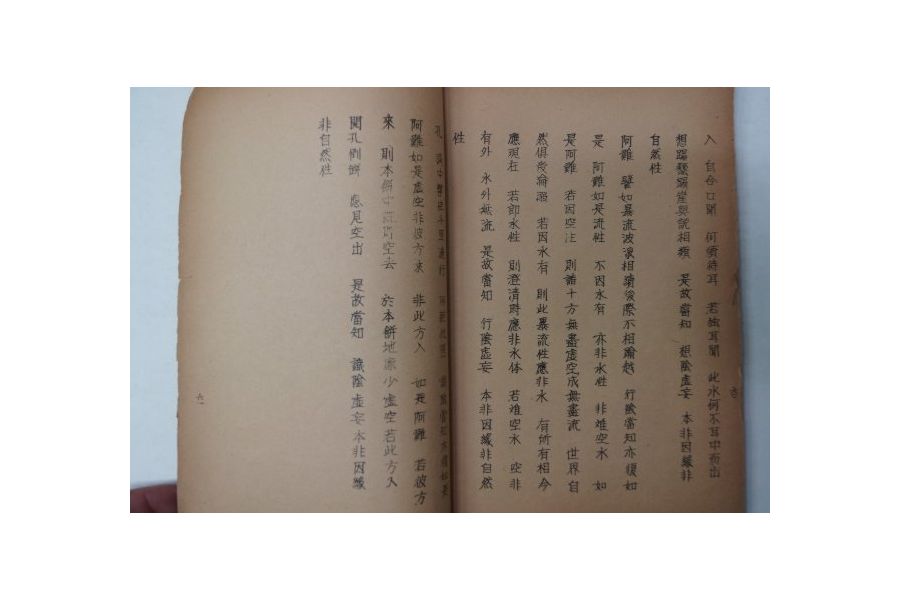 入 自合口聞 何須待耳 若独耳聞 此水何不耳中而出
想踏懸崖與說相類 是故當知 想陰虛妄 本非因緣非
自然性
阿難 譬如暴流波浪相續後際不相踰越 行陰當知亦復如
是 阿難如是流性 不因水有 亦非水性 非離空水 如
是阿難 若因空生 則諸十方無盡虛空成無盡流 世界自
然俱受淪溺 若因水有 則此暴流性應非水 有所有相今
應現在 若即水性 則澄清時應非水体 若離空水 空非
有外 水外無流 是故當知 行陰虛妄 本非因緣非自然
性
阿難如是虛空非彼方來 非此方入 如是阿難 若彼方
來 則本餅中既貯空去 於本餅地應少虛空若此方入
開孔倒餅 應見空出 是故當知 識陰虛妄本非因緣
非自然性